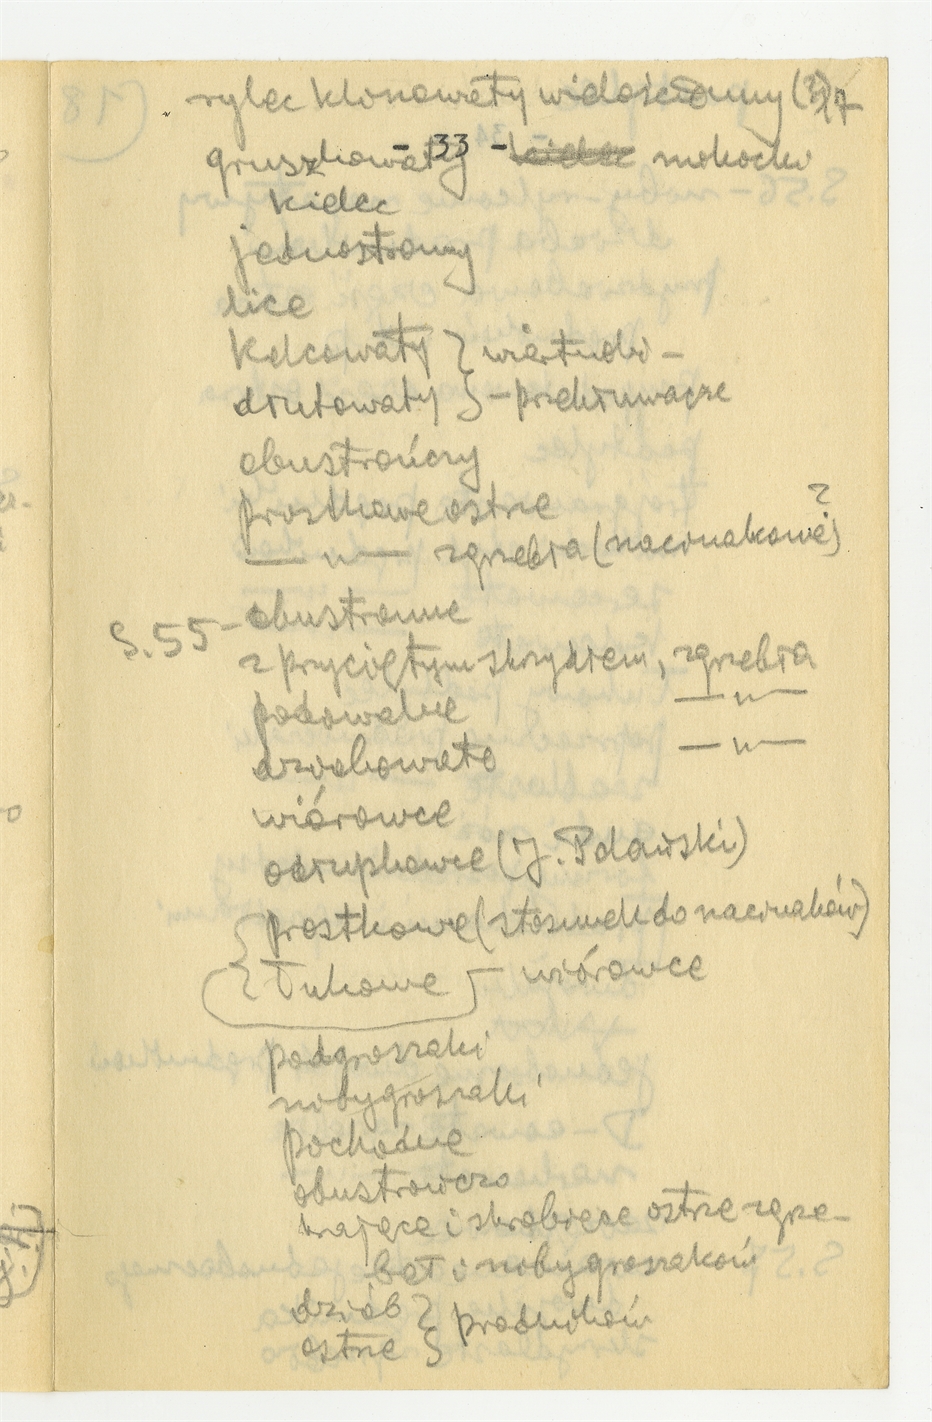 rylec klonowaty wielościenny (3) 17
gruszkowaty - 33 - mohocki
kielec
jednostronny
lice
kolcowaty } wiertniki -
drutowaty } - przekłuwacze
obustrończy
prostkowe ostrze
— „ — zgrzebła (nacinakowe) ?
S.55 - obustronne
z przyciętym skrzydłem, zgrzebła
podowalne — „ —
dziobowate — „ —
wiórowce
odłupkowce (J. Pdawski)
{ prostkowe (stosunek do nacinaków)
{ łukowe - wiórowce
podgroszaki
nobygroszaki
pochodne
obustrowcza
krające i skrobiące ostrze zgrze-
beł i nobygroszaków
dziób } pradników
ostrze }